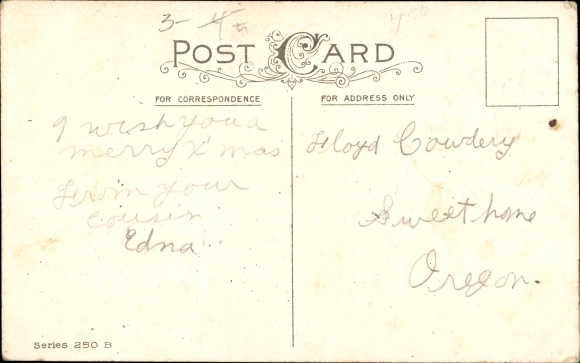 3- 4th
POST CARD
FOR CORRESPONDENCE
FOR ADDRESS ONLY
I wish you a
merry X mas
From your
cousin
Edna
Floyd Cowdery
Sweet home
Oregon.
Series 250 B